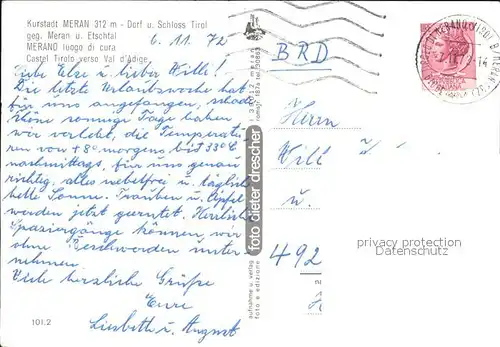 Kurstadt MERAN 312 m - Dorf u. Schloss Tirol
geg. Meran u. Etschtal
MERANO luogo di cura
Castel Tirolo verso Val d'Adige
6.11.72
Liebe Else u. lieber Wille!
Die letzte Urlaubswoche hat
für uns angefangen, schade
schöne sonnige Tage haben
wir verlebt, die Temperatu
ren von +8° morgens bis 33°C
nachmittags, für uns genau
richtig, alles nebelfrei u. täglich
helle Sonne. Trauben u. Äpfel
werden jetzt geerntet. Herrliche
Spaziergänge können wir
ohne Beschwerden unter
nehmen.
Viele herzliche Grüße
Eure
Liesbeth u. August
101.2
foto dieter drescher
aufnahme u. verlag
foto e edizione
BRD
Herrn
Will
u.
492
privacy protection
Datenschutz